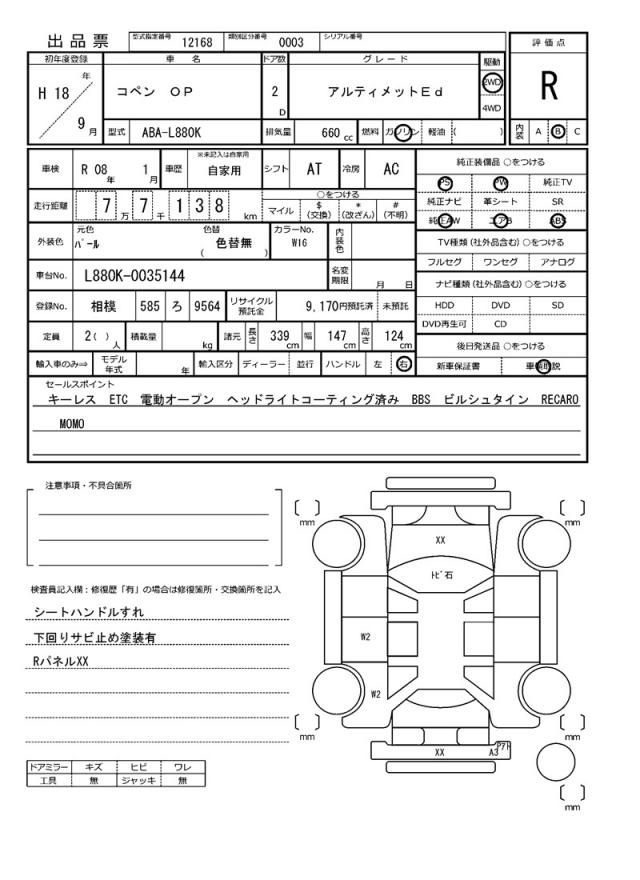 出品票 型式指定番号 12168 類別区分番号 0003 シリアル番号
評価点
R
初年度登録 車名 ドア数 グレード 駆動
H 18 年 9 月
コペン OP
2 D
アルティメットEd
2WD
4WD
型式 ABA-L880K 排気量 660 cc 燃料 ガソリン 軽油 ( )
内装 A B C
車検 R 08 年 1 月 車歴 ※未記入は自家用 自家用 シフト AT 冷房 AC
走行距離 7 万 7 千 1 3 8 km
○をつける
マイル $ (交換) * (改ざん) # (不明)
外装色 元色 パール 色替 ( 色替無 ) カラーNo. W16 内装色
車台No. L880K-0035144 名変期限 月 日
登録No. 相模 585 ろ 9564 リサイクル預託金 9,170円預託済 未預託
定員 2( ) 人 積載量 kg 諸元 長さ 339 cm 幅 147 cm 高さ 124 cm
輸入車のみ⇒ モデル年式 年 輸入区分 ディーラー 並行 ハンドル 左 右
純正装備品 ○をつける
PS PW 純正TV
純正ナビ 革シート SR
純正AW エアB ABS
TV種類 (社外品含む) ○をつける
フルセグ ワンセグ アナログ
ナビ種類 (社外品含む) ○をつける
HDD DVD SD
DVD再生可 CD
後日発送品 ○をつける
新車保証書 車輌取説
セールスポイント
キーレス ETC 電動オープン ヘッドライトコーティング済み BBS ビルシュタイン RECARO
MOMO
注意事項・不具合箇所
検査員記入欄：修復歴「有」の場合は修復箇所・交換箇所を記入
シートハンドルすれ
下回りサビ止め塗装有
RパネルXX
ドアミラー キズ ヒビ ワレ
工具 無 ジャッキ 無
[ ] mm
[ ] mm
XX
トビ石
W2
W2
[ ] mm
[ ] mm
XX A3 アト
[ ] mm